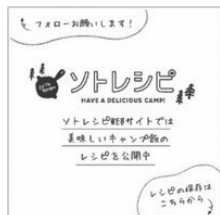 フォローお願いします!
ソトレシピ
HAVE A DELICIOUS CAMP!
ソトレシピWEBサイトでは
美味しいキャンプ飯の
レシピを公開中
レシピの保存は
こちらから